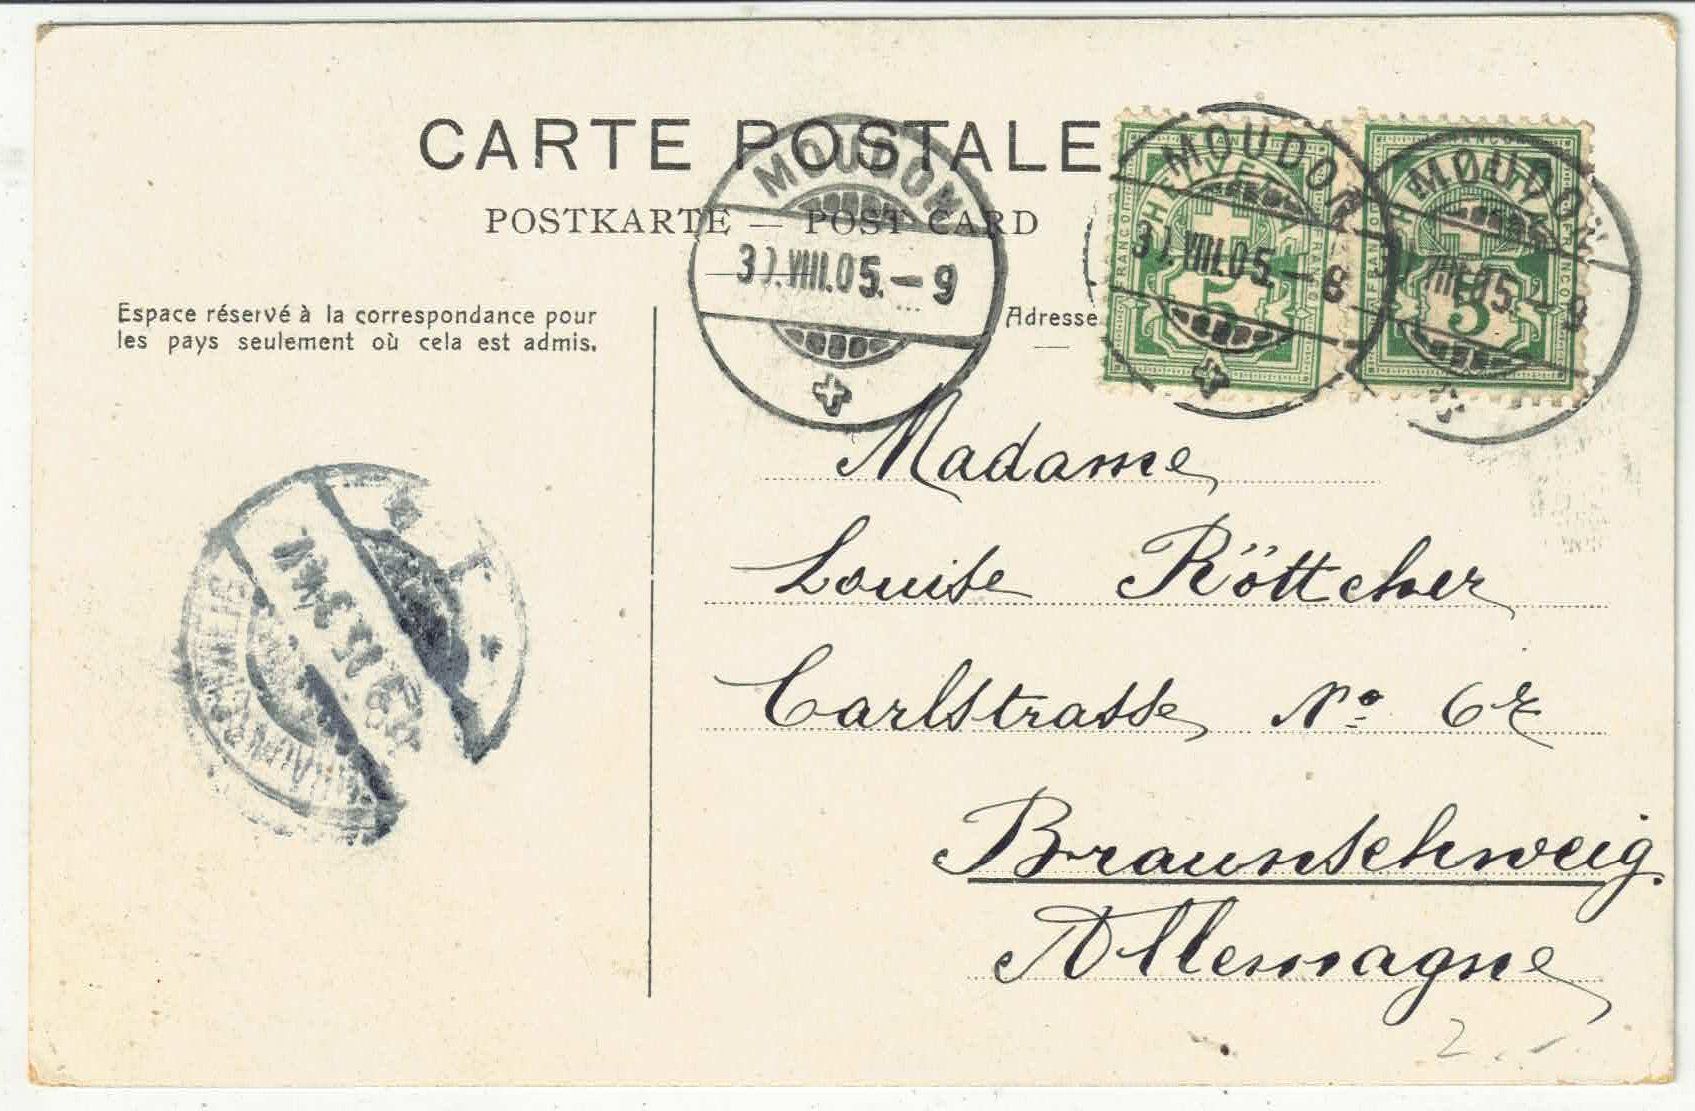 CARTE POSTALE
POSTKARTE — POST CARD
Espace réservé à la correspondance pour
les pays seulement où cela est admis.
Adresse
MOUDON
VIII.05.-9
HELVETIA
FRANCO
5
MOUDON
VIII.05.-8
HELVETIA
FRANCO
5
MOUDON
VIII.05.-9
Madame
Louise Röttcher
Carlstrasse No
Braunschweig.
Allemagne
2